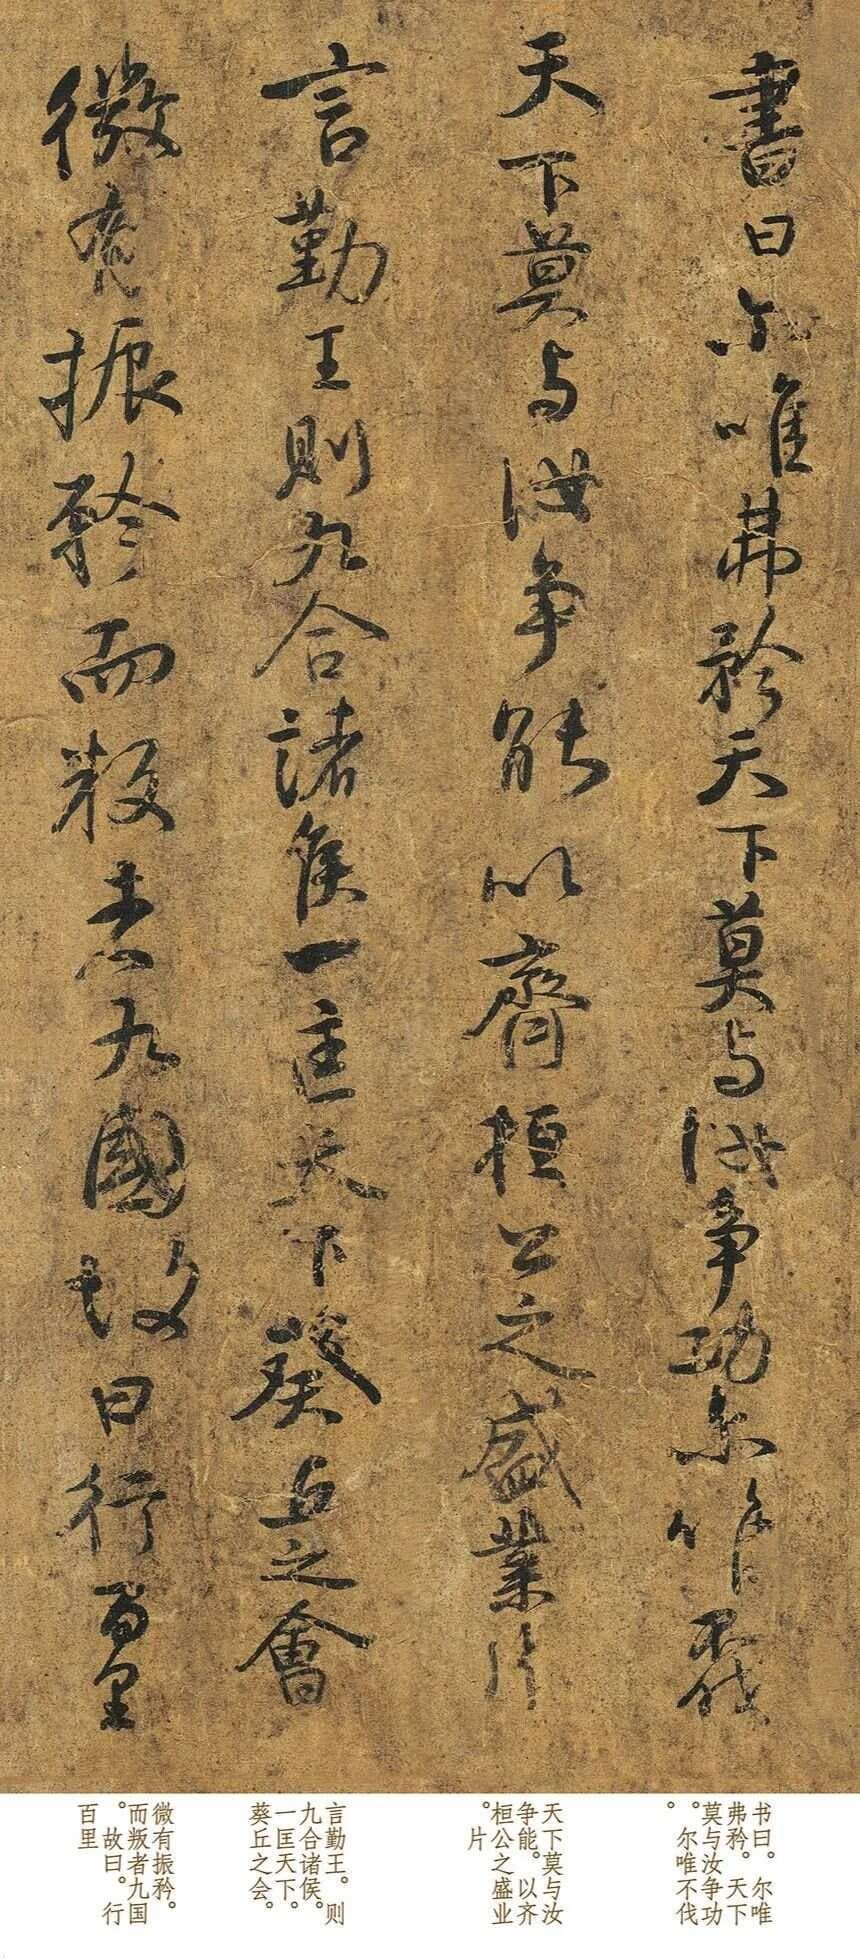 書曰尔唯弗矜天下莫与汝争功尔唯不伐
天下莫与汝争能以齊桓公之盛業片
言勤王則九合諸侯一匡天下葵丘之會
微有振矜而叛者九國故曰行百里
书曰。尔唯
弗矜。天下
莫与汝争功
。尔唯不伐
。
天下莫与汝
争能。以齐
桓公之盛业
。片
言勤王。则
九合诸侯。
一匡天下。
葵丘之会。
微有振矜。
而叛者九国
。故曰。行
百里